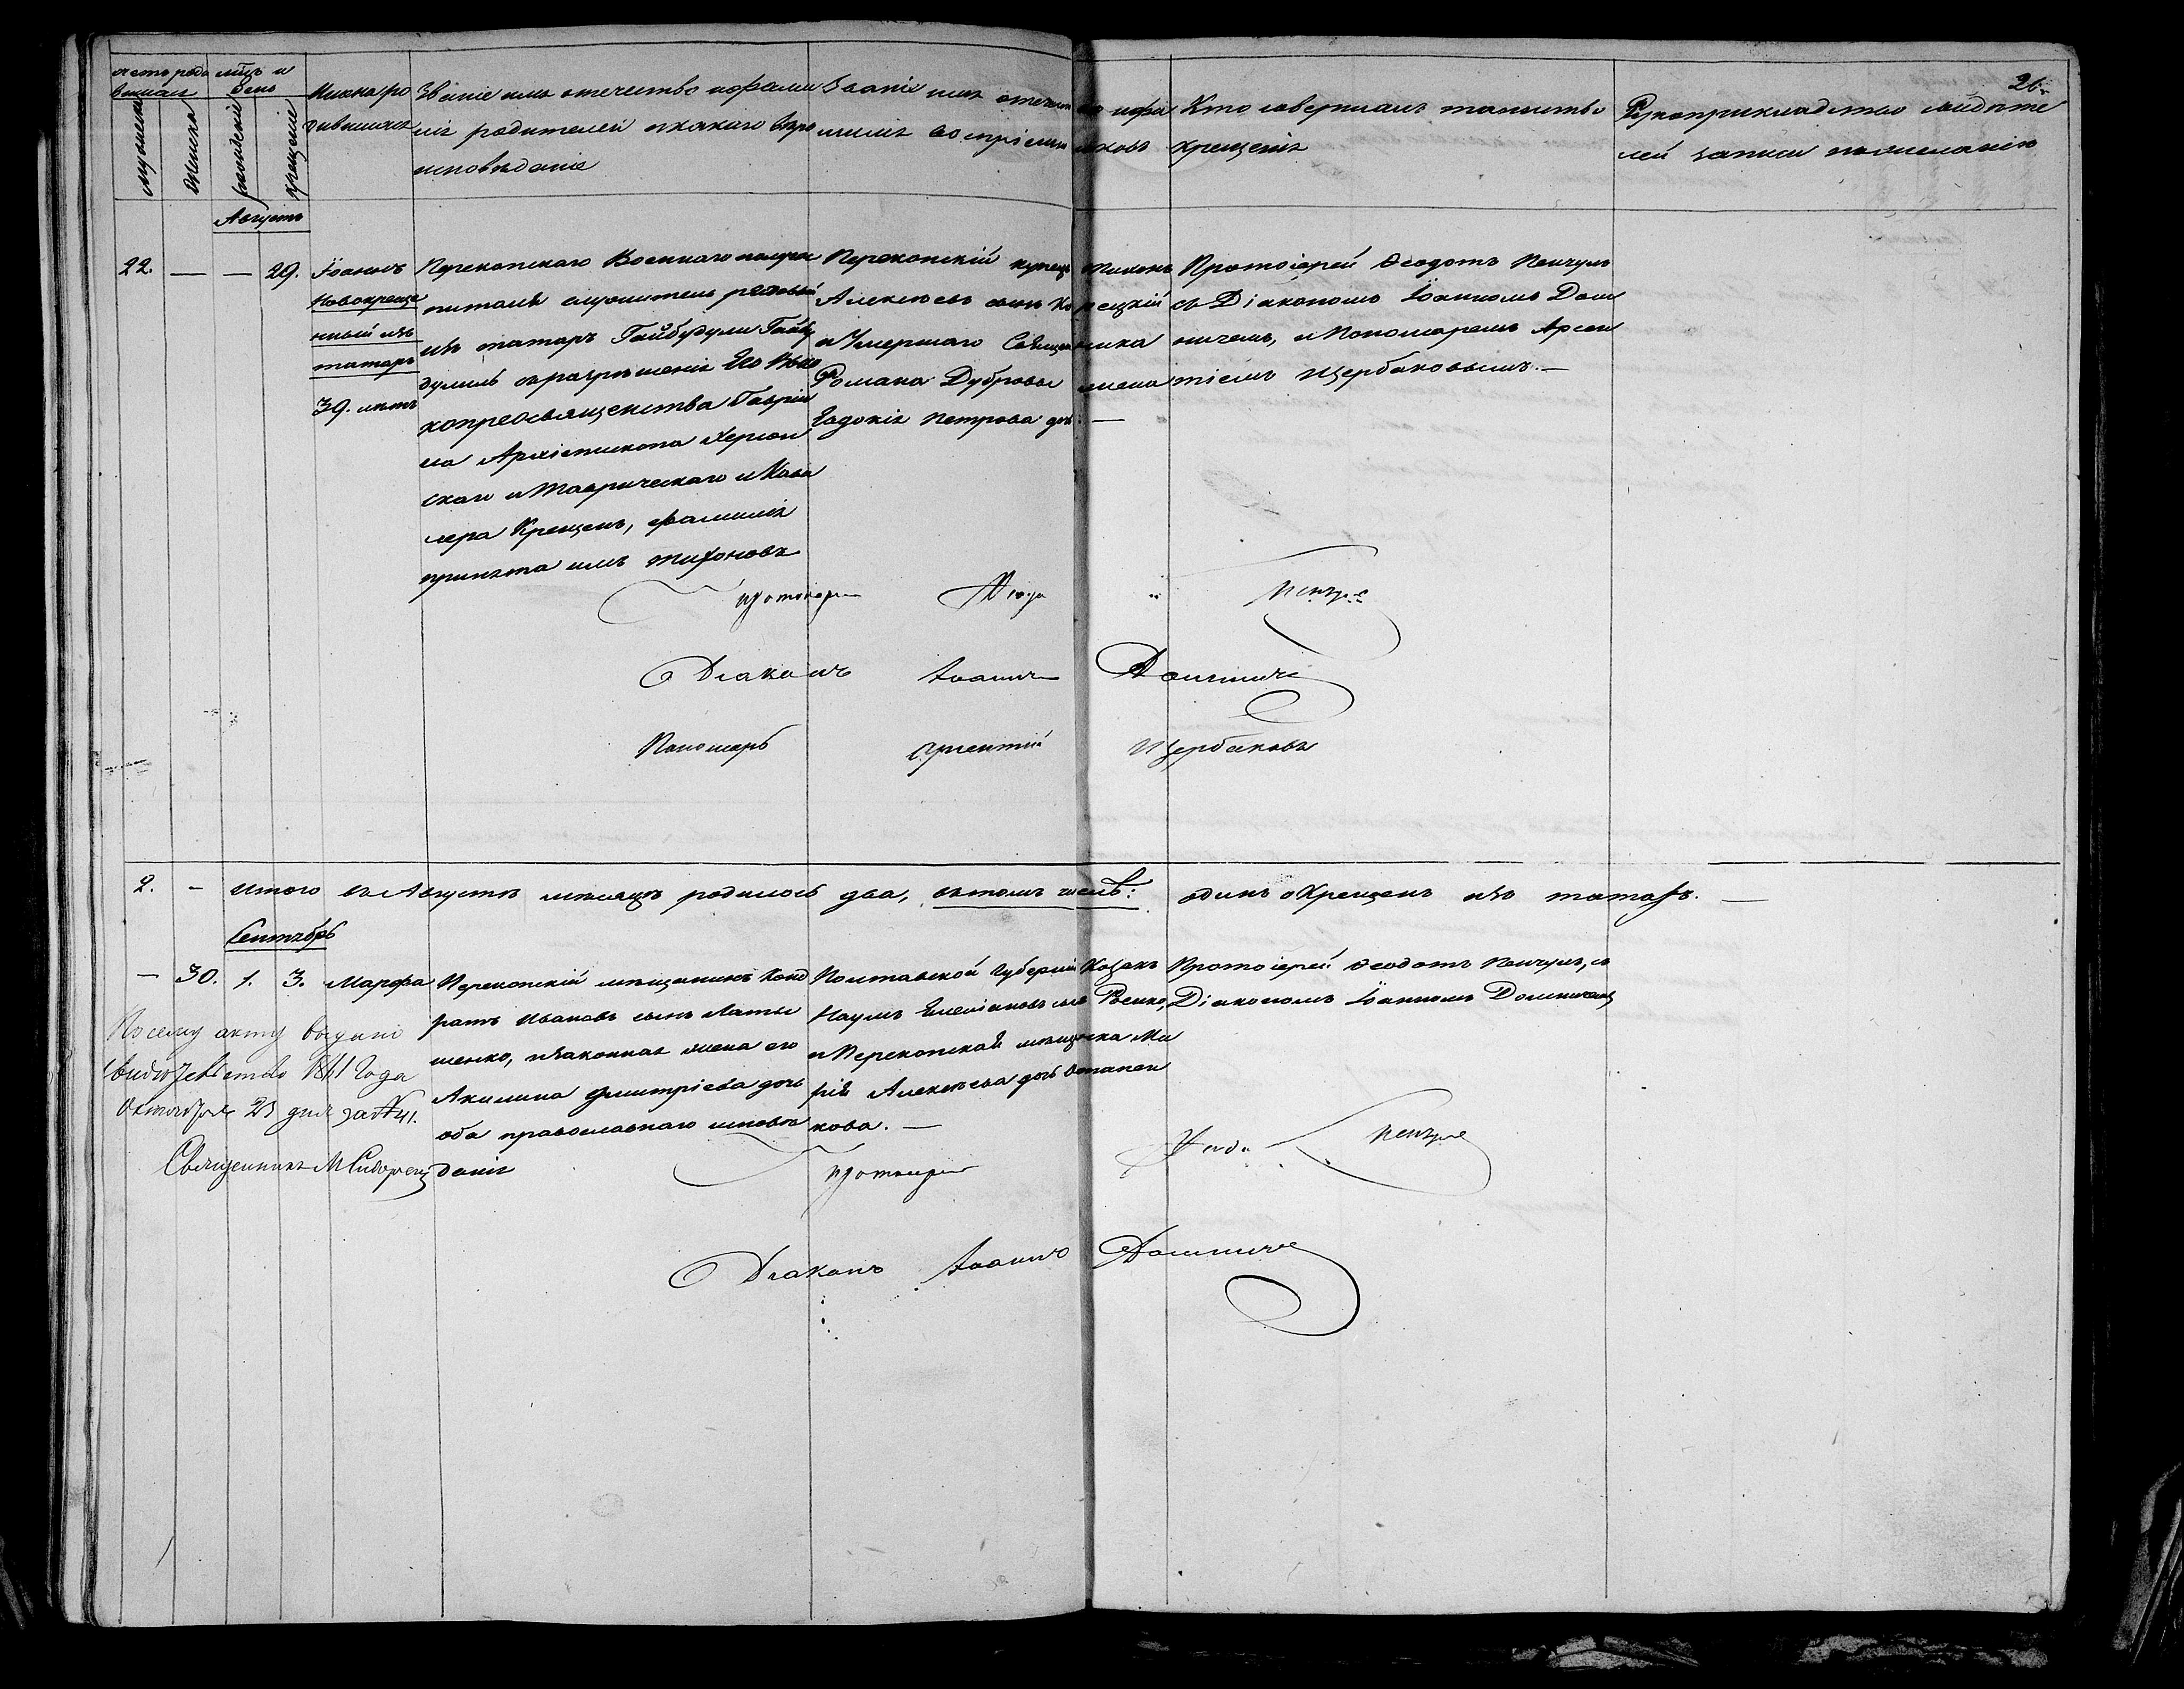 26.
счетъ родившихся
мѣсць и день
мужеска
женска
рожденія
крещенія
Имена родившихся
Званіе имя отечество и фамилія родителей и какого вѣроисповѣданія
Званіе имя отечество и фамилія воспріемниковъ
Кто совершалъ таинство крещенія
Рукоприкладство свидѣтелей записи по желанію
Августъ
22. — — 29. Іоаннъ
Новокрещенный изъ
татаръ
39. лѣтъ
Перекопскаго Военнаго полугоспиталя служитель рядовый
изъ татаръ Гайбудули
съ разрѣшенія Его Высокопреосвященства Гавріила
Архіепископа Херсонскаго и Таврическаго и Кавалера Крещенъ, фамилія
принята имъ Тихоновъ
Перекопскій купецъ Тихонъ
Алексѣевъ сынъ
и Умершаго Священника
Романа Дубровы жена
Евдокія Петрова дочь. —
Протоіерей Ѳеодотъ Пенчулъ
съ Діакономъ Іоанномъ Домничемъ, и Пономаремъ Арсентіемъ Щербаковымъ. —
Протоіерей Пенчулъ
Діаконъ Іоаннъ Домничъ
Пономарь Арсентій Щербаковъ
2. - Итого въ Августѣ мѣсяцѣ родилось два, въ томъ числѣ: одинъ окрещенъ изъ татаръ. —
Сентябрь
— 30. 1. 3. Марфа
Перекопскій мѣщанинъ Кондратъ Ивановъ сынъ Латышенко, и законная жена его
Акилина Дмитріева дочь
оба православнаго исповѣданія
Полтавской Губерніи Козакъ
Наумъ Емеліановъ сынъ
и Перекопская мѣщанка Марія Алексѣева дочь Остапенкова. —
Протоіерей Ѳеодотъ Пенчулъ, съ
Діакономъ Іоанномъ Домничемъ
По сему акту выдано
свидѣтельство 1861 Года
Октября 23 дня за № 41.
Священникъ М
Протоіерей Пенчулъ
Діаконъ Іоаннъ Домничъ